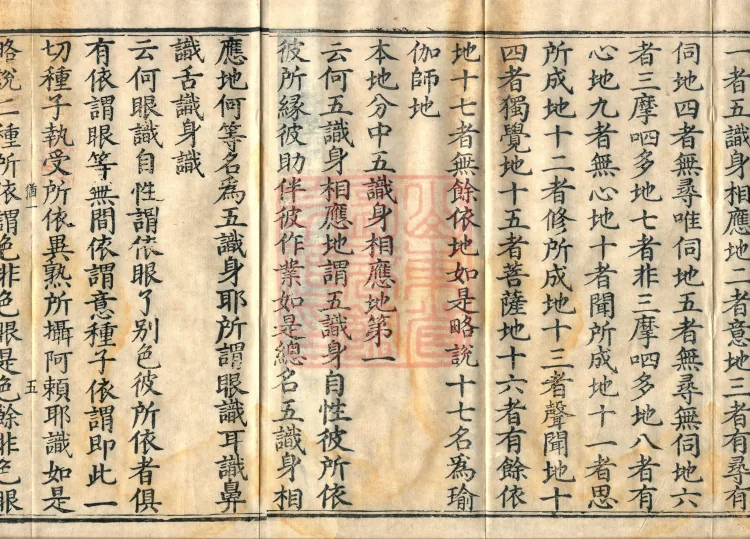 一者五識身相應地二者意地三者有尋有
伺地四者無尋唯伺地五者無尋無伺地六
者三摩呬多地七者非三摩呬多地八者有
心地九者無心地十者聞所成地十一者思
所成地十二者修所成地十三者聲聞地十
四者獨覺地十五者菩薩地十六者有餘依
地十七者無餘依地如是略說十七名為瑜
伽師地
本地分中五識身相應地第一
云何五識身相應地謂五識身自性彼所依
彼所緣彼助伴彼作業如是總名五識身相
應地何等名為五識身耶所謂眼識耳識鼻
識舌識身識
云何眼識自性謂依眼了別色彼所依者俱
有依謂眼等無間依謂意種子依謂即此一
切種子執受所依異熟所攝阿賴耶識如是
猶一 五
略說二種所依謂色非色眼是色餘非色眼